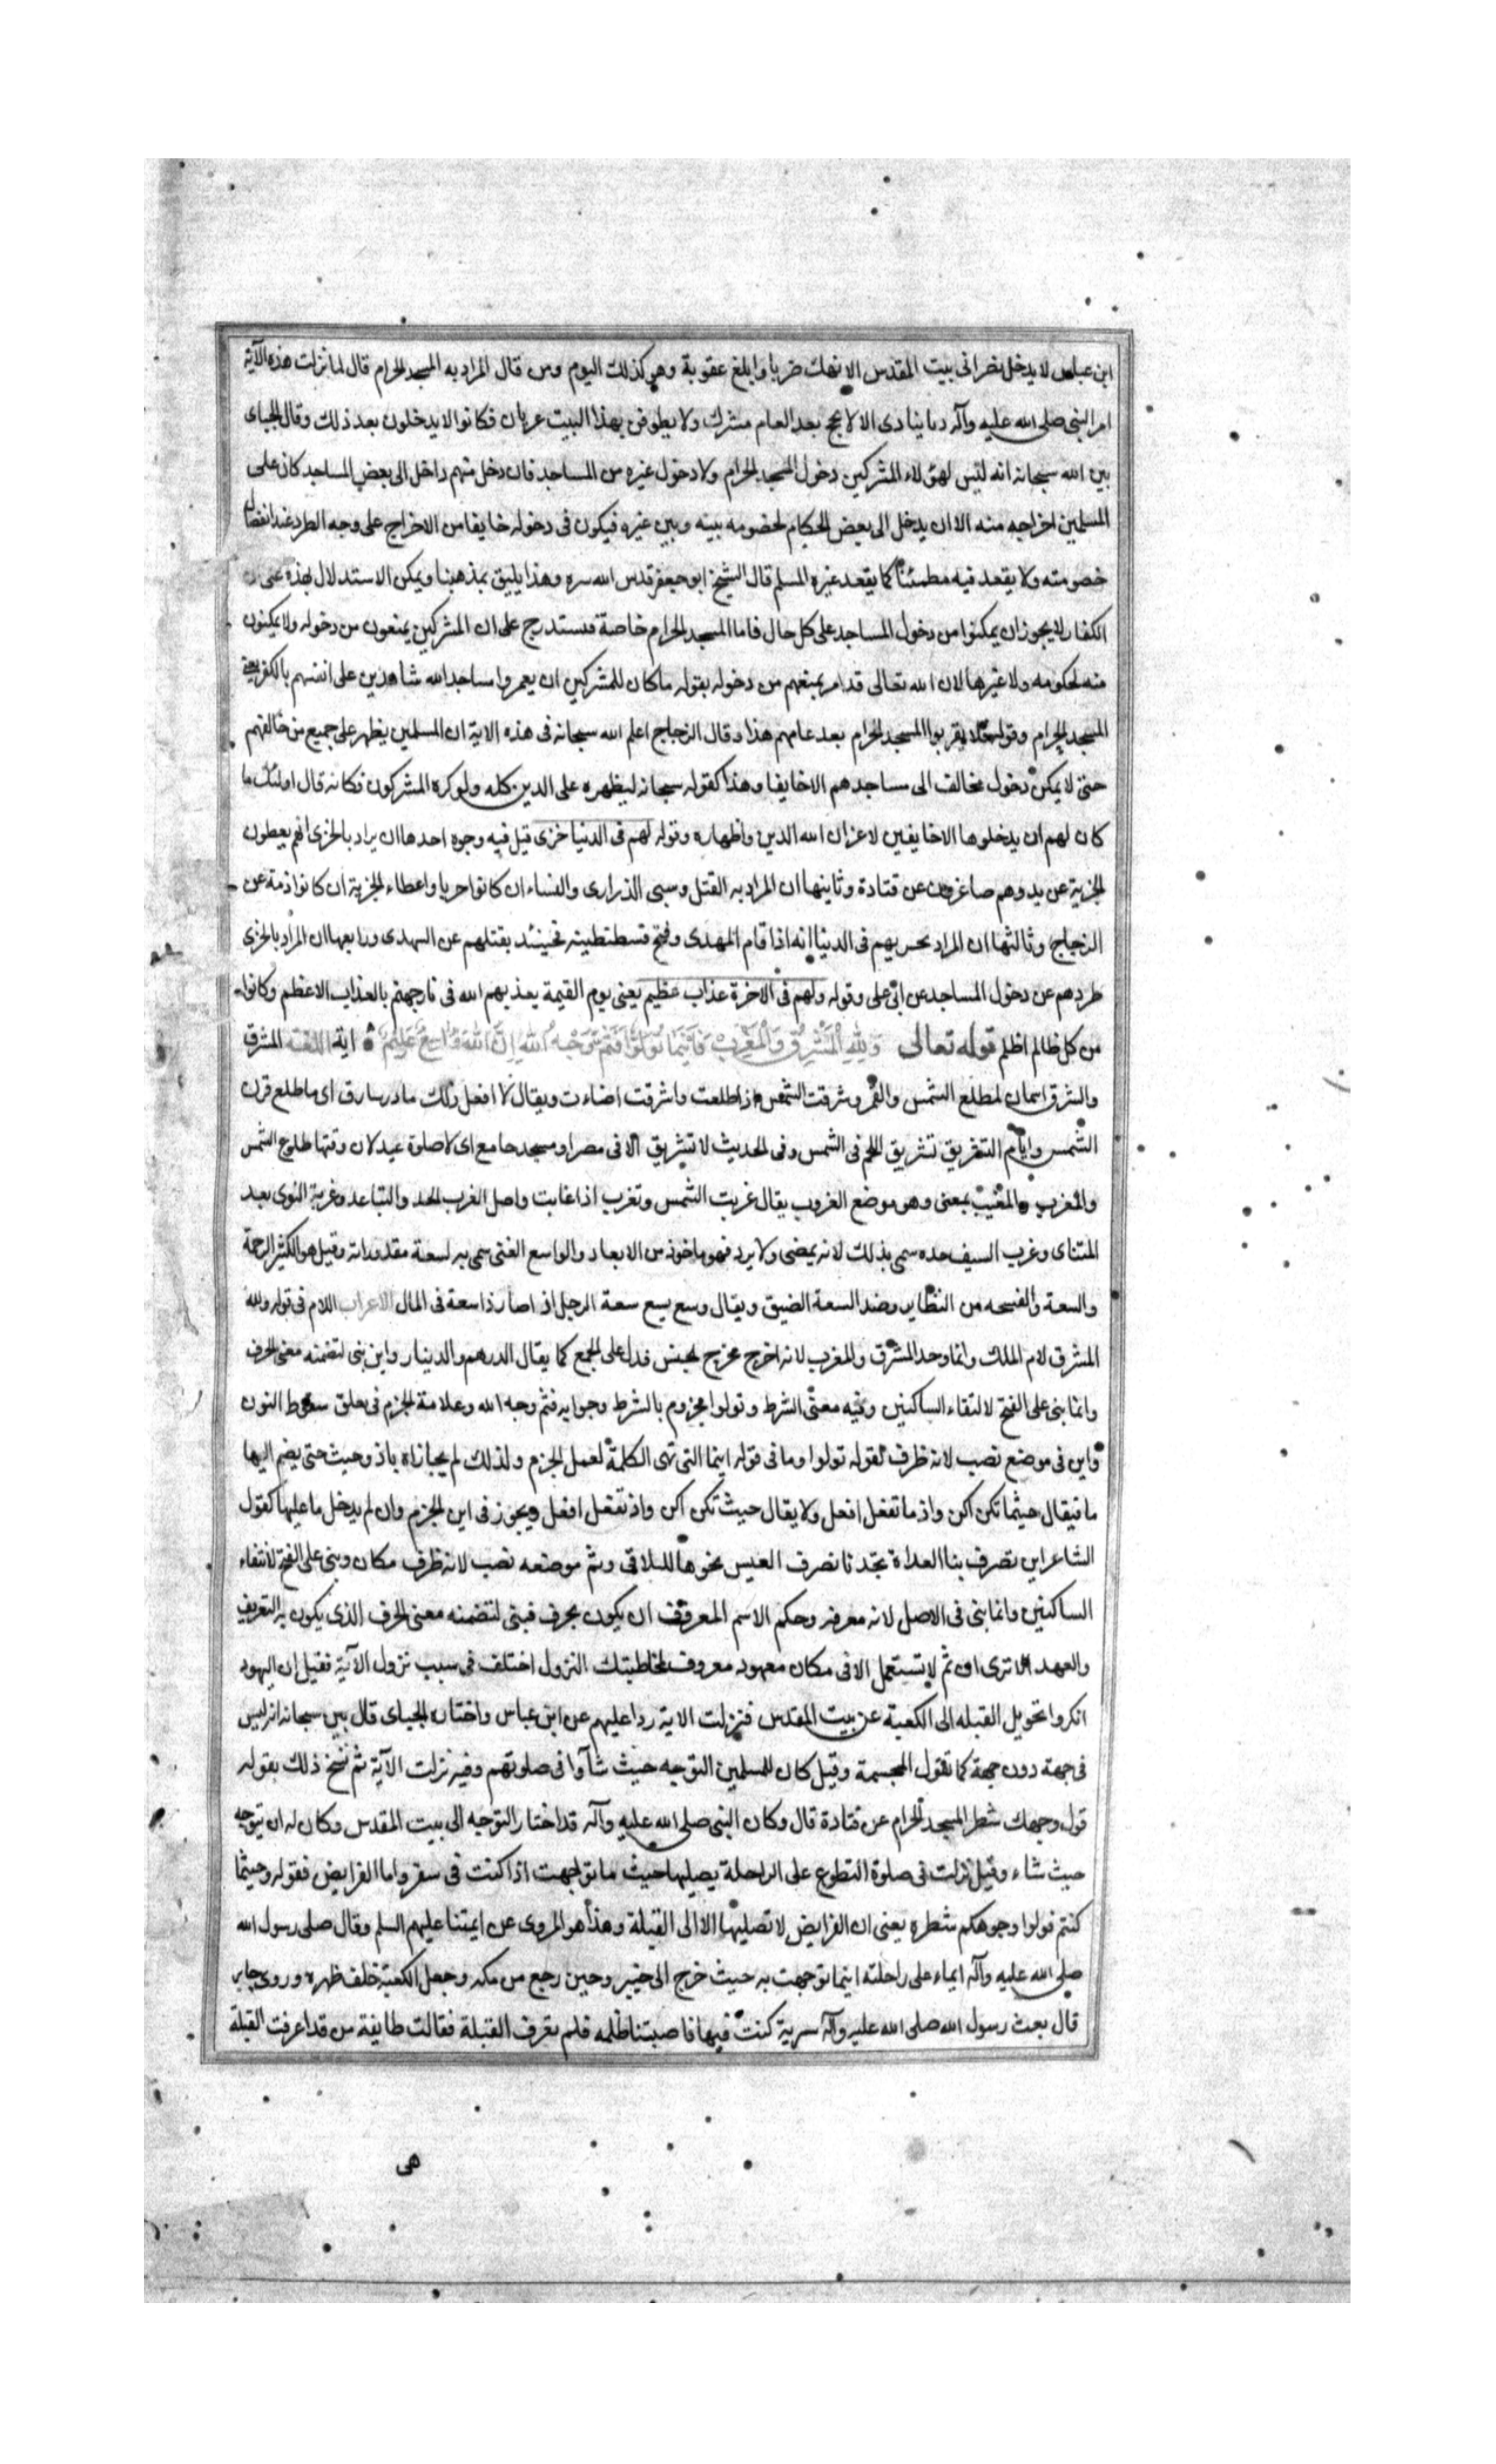 ابن عباس لا يدخل نصرانى بيت المقدس الا نهك ضربا وابلغ عقوبة وهو كذلك اليوم ومن قال المراد به المسجد الحرام قال لما نزلت هذه الآية
امر النبى صلى الله عليه وآله مناديا ينادى الا لا يحج بعد العام مشرك ولا يطوفن بهذا البيت عريان فكانوا لا يدخلون بعد ذلك وقال الجباى
بين الله سبحانه انه ليس لهؤلاء المشركين دخول المسجد الحرام ولا دخول غيره من المساجد فان دخل منهم داخل الى بعض المساجد كان على
المسلمين اخراجه منه الا ان يدخل الى بعض الحكام لخصومه بينه وبين غيره فيكون فى دخوله خايفا من الاخراج على وجه الطرد عند انفصال
خصومته ولا يقعد فيه مطمئنا كما يقعد غيره المسلم قال الشيخ ابو جعفر قدس الله سره وهذا يليق بمذهبنا ويمكن الاستدلال بهذه على ان
الكفار لا يجوز ان يمكنوا من دخول المساجد على كل حال فاما المسجد الحرام خاصة فستدرج على ان المشركين يمنعون من دخوله ولا يمكنون
منه لحكومه ولا غيرها لان الله تعالى قد امر بمنعهم من دخوله بقوله ما كان للمشركين ان يعمروا مساجد الله شاهدين على انفسهم بالكفر يعنى
المسجد الحرام وقوله فلا يقربوا المسجد الحرام بعد عامهم هذا وقال الزجاج اعلم الله سبحانه فى هذه الاية ان المسلمين يظهر على جميع من خالفهم
حتى لا يمكن دخول مخالف الى مساجدهم الا خايفا وهذا كقوله سبحانه ليظهره على الدين كله ولو كره المشركون فكانه قال اولئك ما
كان لهم ان يدخلوها الا خايفين لاعزان الله الدين واظهاره وقوله لهم فى الدنيا خزى قيل فيه وجوه احدها ان يراد بالخزى انهم يعطون
الجزية عن يد وهم صاغرون عن قتادة وثانيها ان المراد به القتل وسبى الذرارى والنساء ان كانوا حربا واعطاء الجزية ان كانوا ذمة عن
الزجاج وثالثها ان المراد بخزيهم فى الدنيا انه اذا قام المهدى وفتح قسطنطينة فحينئذ يقتلهم عن السدى ورابعها ان المراد بالخزى
طردهم عن دخول المساجد عن ابى على وقوله ولهم فى الاخرة عذاب عظيم يعنى يوم القيمة يعذبهم الله فى نار جهنم بالعذاب الاعظم وكانوا
من كل ظالم اظلم قوله تعالى وَلِلّهِ الْمَشْرِقُ وَالْمَغْرِبُ فَاَيْنَمَا تُوَلُّوا فَثَمَّ وَجْهُ اللهِ اِنَّ اللهَ وَاسِعٌ عَلِيمٌ اية اللغة المشرق
والشرق اسمان لمطلع الشمس والقمر وشرقت الشمس اذا طلعت واشرقت اضاءت ويقال لا افعل ذلك ما ذر شارق اى ما طلع قرن
الشمس وايام التشريق تشريق اللحم فى الشمس وفى الحديث لا تشريق الا فى مصر او مسجد جامع اى لا صلوة عيد لان وقتها طلوع الشمس
والمغرب والمغيب بمعنى وهو موضع الغروب يقال غربت الشمس وتغرب اذا غابت واصل الغرب الحد والتباعد وغربة النوى بعد
المتناى وغرب السيف حده سمى بذلك لانه يمضى ولا يرد فهو ماخوذ من الابعاد والواسع الغنى سمى به لسعة مقدوراته وقيل هو الكثير الرحمة
والسعة والفسحه من النظاير وضد السعة الضيق ويقال وسع يسع سعة الرجل اذا صار ذا سعة فى المال الاعراب اللام فى قوله ولله
المشرق لام الملك وانما وحد المشرق والمغرب لانه اخرج مخرج الجنس فدل على الجمع كما يقال الدرهم والدينار واين بنى لتضمنه معنى الحرف
وانما بنى على الفتح لالتقاء الساكنين وفيه معنى الشرط وتولوا مجزوم بالشرط وجوابه فثم وجه الله وعلامة الجزم فى سقوط النون
واين فى موضع نصب لانه ظرف لقوله تولوا وما فى قوله اينما التى تهى الكلمة لعمل الجزم ولذلك لم يجازاه باذ وحيث حتى يضم اليها
ما فيقال حيثما تكن اكن واذ ما تفعل افعل ولا يقال حيث تكن اكن واذ تفعل افعل ويجوز فى اين الجزم وان لم يدخل ما عليها كقول
الشاعر اين تصرف بنا العداة تجدنا نصرف العيس نحوها للتلاقى وثم موضعه نصب لانه ظرف مكان وبنى على الفتح لالتقاء
الساكنين وانما بنى فى الاصل لانه معرفه وحكم الاسم المعروف ان يكون بحرف فبنى لتضمنه معنى الحرف الذى يكون به التعريف
والعهد الا ترى ان ثم لا يستعمل الا فى مكان معهود معروف لمخاطبتك النزول اختلف فى سبب نزول الآية فقيل ان اليهود
انكروا تحويل القبله الى الكعبة عن بيت المقدس فنزلت الاية ردا عليهم عن ابن عباس واختاره الجباى قال بين سبحانه انه ليس
فى جهة دون جهة كما تقول المجسمة وقيل كان للمسلمين التوجه حيث شآوا فى صلوتهم وفيه نزلت الآية ثم نسخ ذلك بقوله
فول وجهك شطر المسجد الحرام عن قتادة قال وكان النبى صلى الله عليه وآله قد اختار التوجه الى بيت المقدس وكان له ان يتوجه
حيث شاء وقيل نزلت فى صلوة التطوع على الراحلة يصليها حيث ما توجهت اذا كنت فى سفر واما الفرايض فقوله وحيثما
كنتم فولوا وجوهكم شطره يعنى ان الفرايض لا تصليها الا الى القبلة وهذا هو المروى عن ايمتنا عليهم السلم وقال صلى رسول الله
صلى الله عليه وآله ايماء على راحلته اينما توجهت به حيث خرج الى خيبر وحين رجع من مكه وجعل الكعبة خلف ظهره وروى جابر
قال بعث رسول الله صلى الله عليه وآله سرية كنت فيها فاصبتنا ظلمه فلم نعرف القبلة فقالت طايفة من قد اعرفت القبلة
هى